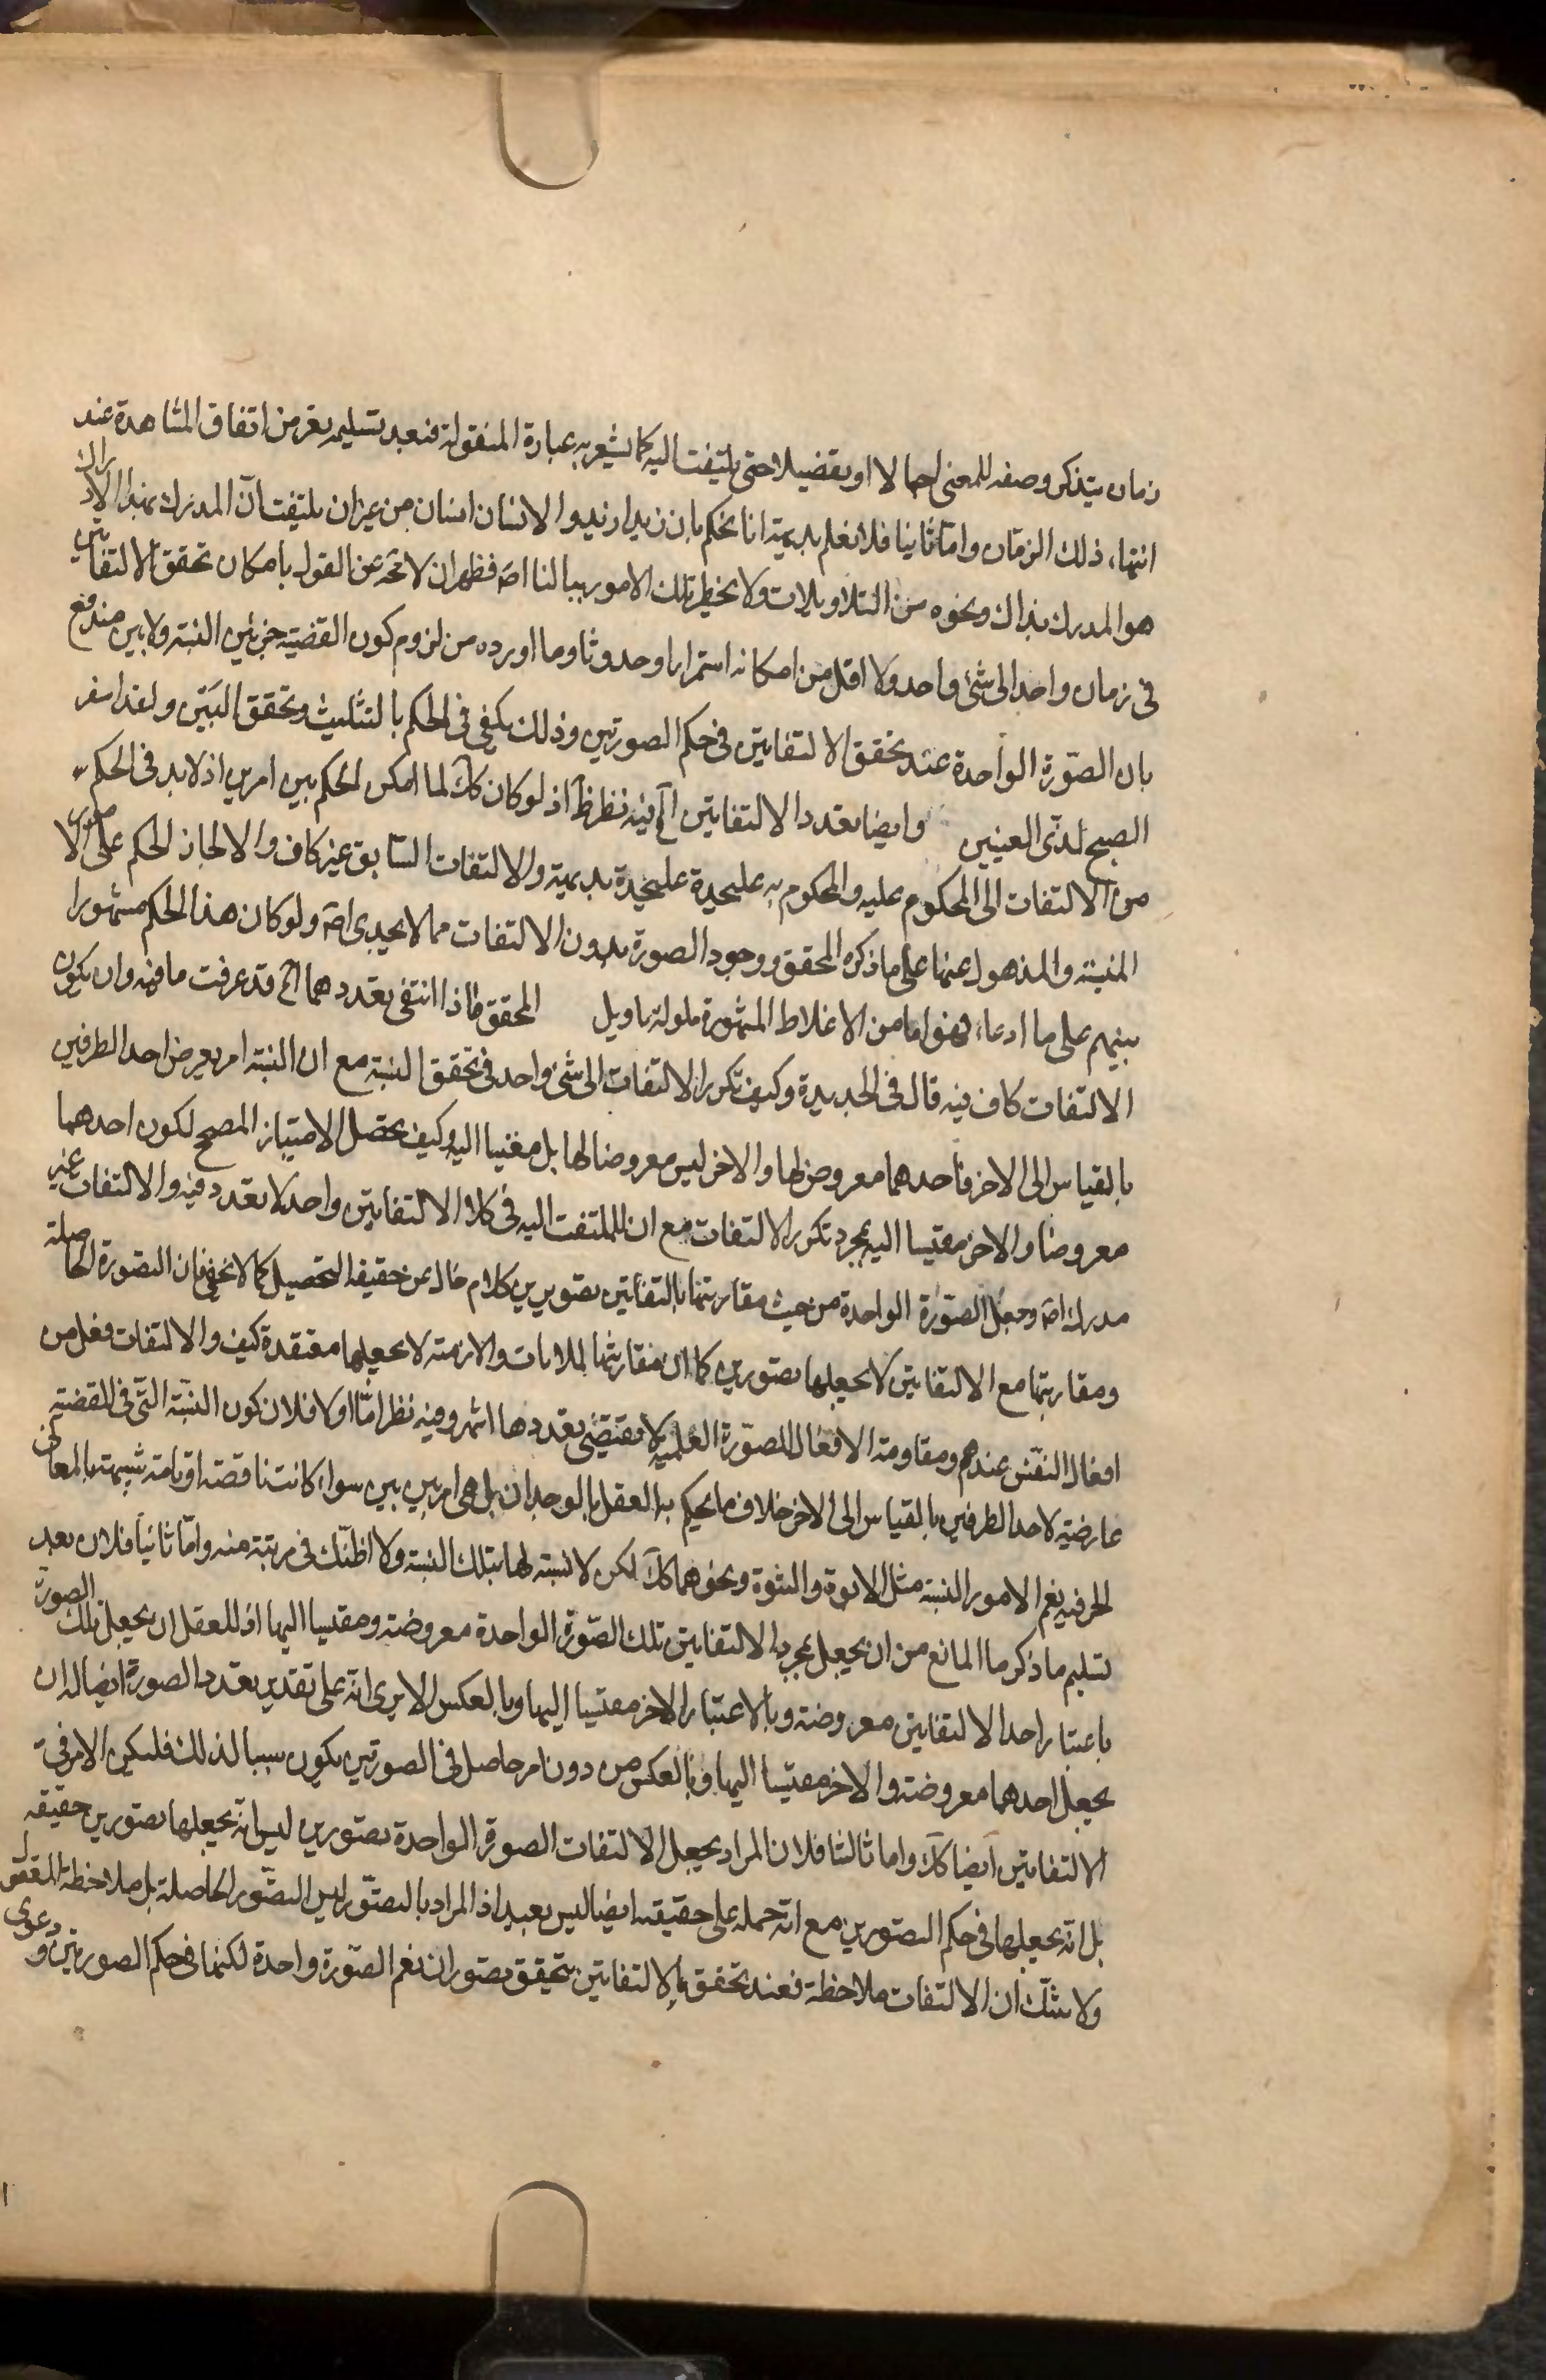 زمان يتذكر وصفه للمعنى اجمالا او تفضيلا حتى يلتفت اليه كما يشعر به عبارة المنقولة فبعد تسليم يقر من اتفاق المشاهدة عند
انتهاء ذلك الزمان واما ثانيا فلانا نعلم بديهية انا نحكم بان زيدا زيد والانسان انسان من غير ان يلتفت ان المدرك بهذا الادراك
هو المدرك بذاك ونحوه من التاويلات ولا يخطر تلك الامور ببالنا اصه فظهر ان لا محة عن القول بامكان تحقق الالتفاتين
فى زمان واحد الى شئ واحد ولا اقل من امكانه استمرارا وحدوثا وما اورده من لزوم كون القضية جزئين النسبة ولا بين مندفع
بان الصورة الواحدة عند تحقق الالتفاتين فى حكم الصورتين وذلك يكفى فى الحكم بالتثليث وتحقق البين ولقد اسفر
الصبح لدى العينين وايضا تعدد الالتفاتين اآخ فيه نظر ظ اذ لو كان كك لما امكن الحكم بين امرين اذ لا بد فى الحكم
من الالتفات الى المحكوم عليه والمحكوم به عليحدة عليحدة بديهية والالتفات السابق غير كاف والا لجاز الحكم على الامور
المنسية والمذهول عنها على ما ذكره المحقق ووجود الصورة بدون الالتفات مما لا يجدى اصه ولو كان هذا الحكم مشهورا
بينهم على ما ادعاه فهو اما من الاغلاط المشهورة ملولة بتاويل المحقق فاذا انتفى تعددهما اآخ قد عرفت ما فيه وان يكون
الالتفات كاف فيه قال فى الجديدة وكيف تكرر الالتفات الى شئ واحد فى تحقق النسبة مع ان النسبة امر يعرض احد الطرفين
بالقياس الى الاخر فاحدهما معروض لها والاخر ليس معروضا لها بل مقيسا اليه وكيف يحصل الامتياز المصحح لكون احدهما
معروضا والاخر مقيسا اليه بمجرد تكرر الالتفات مع ان الملتفت اليه فى كلا الالتفاتين واحد لا تعدد فيه والالتفات غير
مدرك اصه وجعل الصورة الواحدة من حيث مقارنتها بالتفاتين تصويرين كلام خال عن حقيقة التحصيل كما لا يخفى فان الصورة الحاصلة
ومقارنتها مع الالتفاتين لا يجعلها تصورين كما ان مقارنتها للانات والازمنة لا يجعلها متعددة كيف والالتفات فعل من
افعال النفس عندهم ومقاومة الافعال للصورة العلمية لا تقتضى تعددها انتهى وفيه نظر اما اولا فلان كون النسبة التى فى القضية
عارضية لاحد الطرفين بالقياس الى الاخر خلاف ما يحكم به العقل بالوجدان بل هى امر بين بين سواء كانت ناقصة او تامة شبيهة بالمعانى
الحرفية نعم الامور النسبة مثل الابوة والبنوة ونحوهما كك لكن لا نسبة لها بتلك النسبة ولا اظنك فى مرتبة منه واما ثانيا فلان بعد
تسليم ما ذكر ما المانع من ان يجعل بمجرد الالتفاتين تلك الصورة الواحدة معروضة ومقيسا اليها اذ للعقل ان يجعل تلك الصورة
باعتبار احد الالتفاتين معروضة وبالاعتبار الاخر مقيسا اليها وبالعكس الا يرى انه على تقدير تعدد الصورة ايضا له ان
يجعل احدهما معروضة والاخر مقيسا اليها وبالعكس من دون امر حاصل فى الصورتين يكون سببا لذلك فليكن الامر فى
الالتفاتين ايضا كك واما ثالثا فلان المراد بجعل الالتفات الصورة الواحدة تصورين ليس انه يجعلها تصورين حقيقة
بل انه يجعلها فى حكم التصورين مع ان حمله على حقيقته ايضا ليس ببعيد اذ المراد بالتصور ليس التصور الحاصلة بل ملاحظة العقل
ولا شك ان الالتفات ملاحظة فعند تحقق الالتفاتين يتحقق تصوران نعم الصورة واحدة لكنها فى حكم الصورتين ودعوى